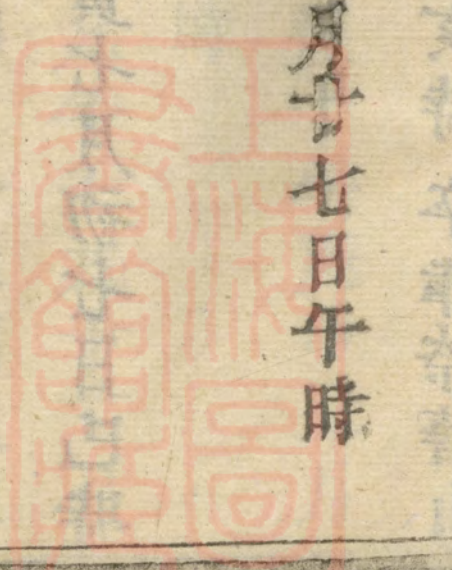 月廿七日午時
上海圖
書館藏